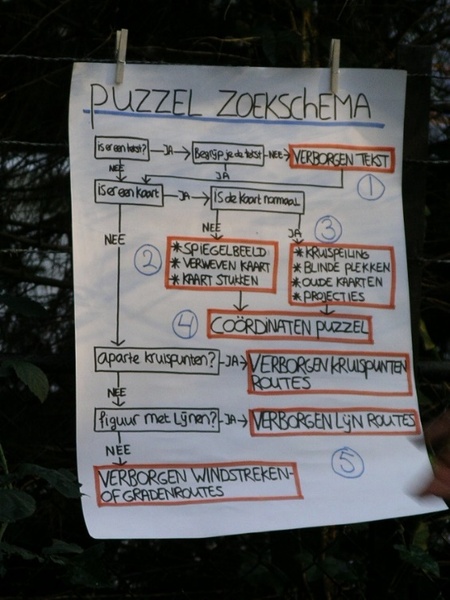 PUZZEL ZOEKSCHEMA
is er een tekst? JA Begrijp je de tekst NEE VERBORGEN TEKST
NEE JA 1
is er een kaart JA is de kaart normaal
NEE NEE JA 3
2 * SPIEGELBEELD * KRUISPEILING
* VERWEVEN KAART * BLINDE PLEKKEN
* KAART STUKKEN * OUDE KAARTEN
* PROJECTIES
4 COÖRDINATEN PUZZEL
aparte kruispunten? JA VERBORGEN KRUISPUNTEN
ROUTES
NEE
figuur met Lijnen? JA VERBORGEN LIJN ROUTES
NEE 5
VERBORGEN WINDSTREKEN-
OF GRADENROUTES